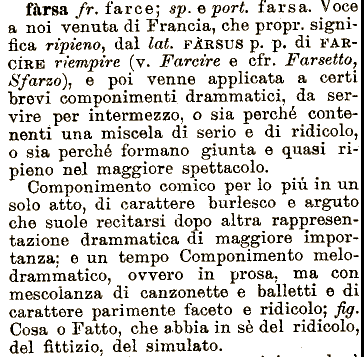 fàrsa fr. farce; sp. e port. farsa. Voce
a noi venuta di Francia, che propr. signi-
fica ripieno, dal lat. FÀRSUS p. p. di FAR-
CIRE riempire (v. Farcire e cfr. Farsetto,
Sfarzo), e poi venne applicata a certi
brevi componimenti drammatici, da ser-
vire per intermezzo, o sia perché conte-
nenti una miscela di serio e di ridicolo,
o sia perché formano giunta e quasi ri-
pieno nel maggiore spettacolo.
Componimento comico per lo piú in un
solo atto, di carattere burlesco e arguto
che suole recitarsi dopo altra rappresen-
tazione drammatica di maggiore impor-
tanza; e un tempo Componimento melo-
drammatico, ovvero in prosa, ma con
mescolanza di canzonette e balletti e di
carattere parimente faceto e ridicolo; fig.
Cosa o Fatto, che abbia in sè del ridicolo,
del fittizio, del simulato.